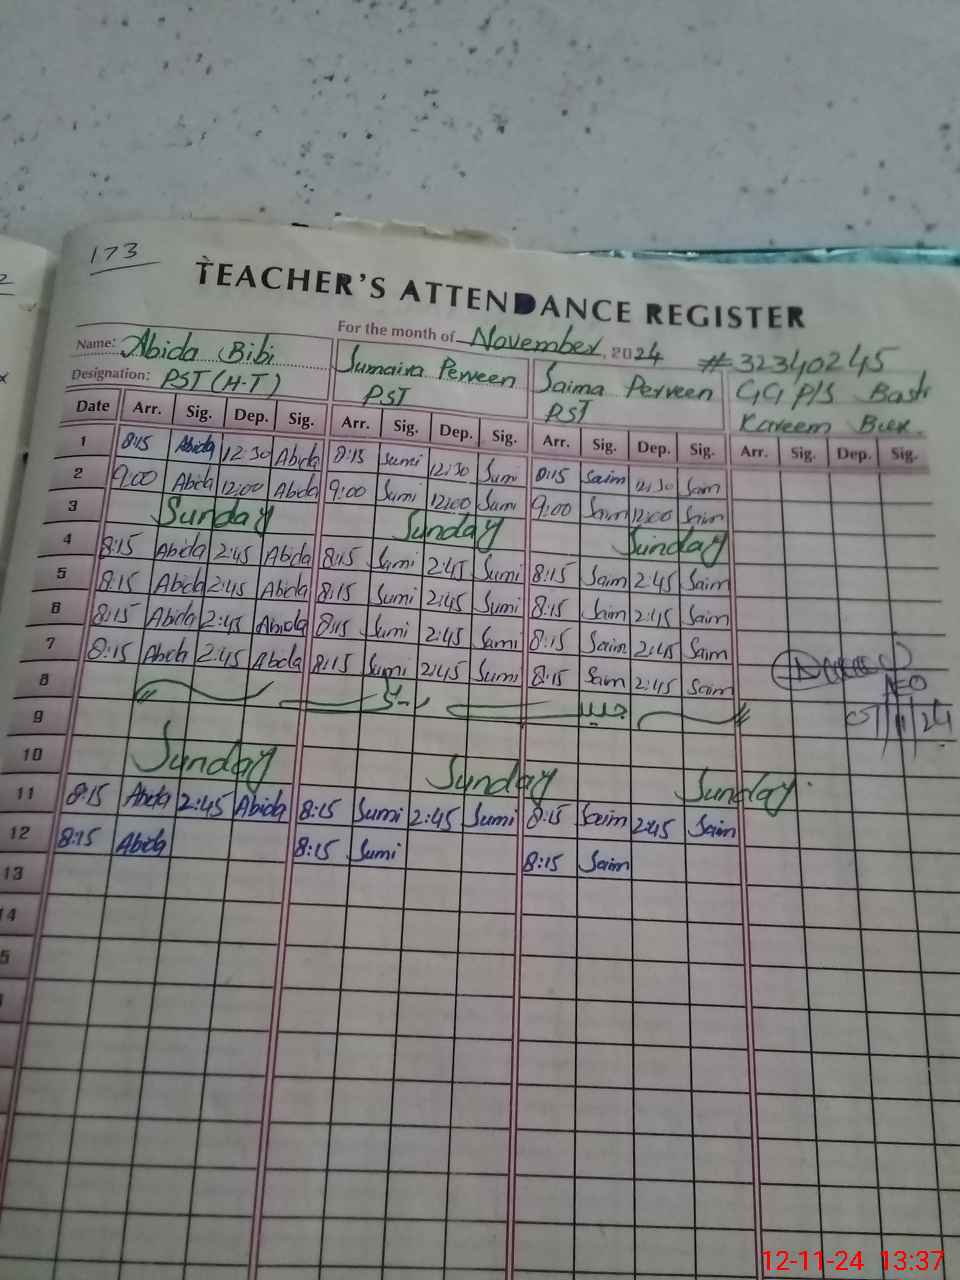 173
TEACHER'S ATTENDANCE REGISTER
For the month of November, 2024 # 32340245
Name: Abida Bibi Sumaira Perveen Saima Perveen GG P/S Basti
Designation: PST (H-T) PST PST Kareem Bux.
Date Arr. Sig. Dep. Sig. Arr. Sig. Dep. Sig. Arr. Sig. Dep. Sig. Arr. Sig. Dep. Sig.
1 8:15 Abida 12:30 Abida 8:15 Sumi 12:30 Sumi 8:15 Saim 12:30 Saim
2 9:00 Abida 12:00 Abida 9:00 Sumi 12:00 Sumi 9:00 Saim 12:00 Saim
3 Sunday Sunday Sunday
4 8:15 Abida 2:45 Abida 8:15 Sumi 2:45 Sumi 8:15 Saim 2:45 Saim
5 8:15 Abida 2:45 Abida 8:15 Sumi 2:45 Sumi 8:15 Saim 2:45 Saim
6 8:15 Abida 2:45 Abida 8:15 Sumi 2:45 Sumi 8:15 Saim 2:45 Saim
7 8:15 Abida 2:45 Abida 8:15 Sumi 2:45 Sumi 8:15 Saim 2:45 Saim
8 AEO
9
10 Sunday Sunday Sunday
11 8:15 Abida 2:45 Abida 8:15 Sumi 2:45 Sumi 8:15 Saim 2:45 Saim
12 8:15 Abida 8:15 Sumi 8:15 Saim
13
14
12-11-24 13:37